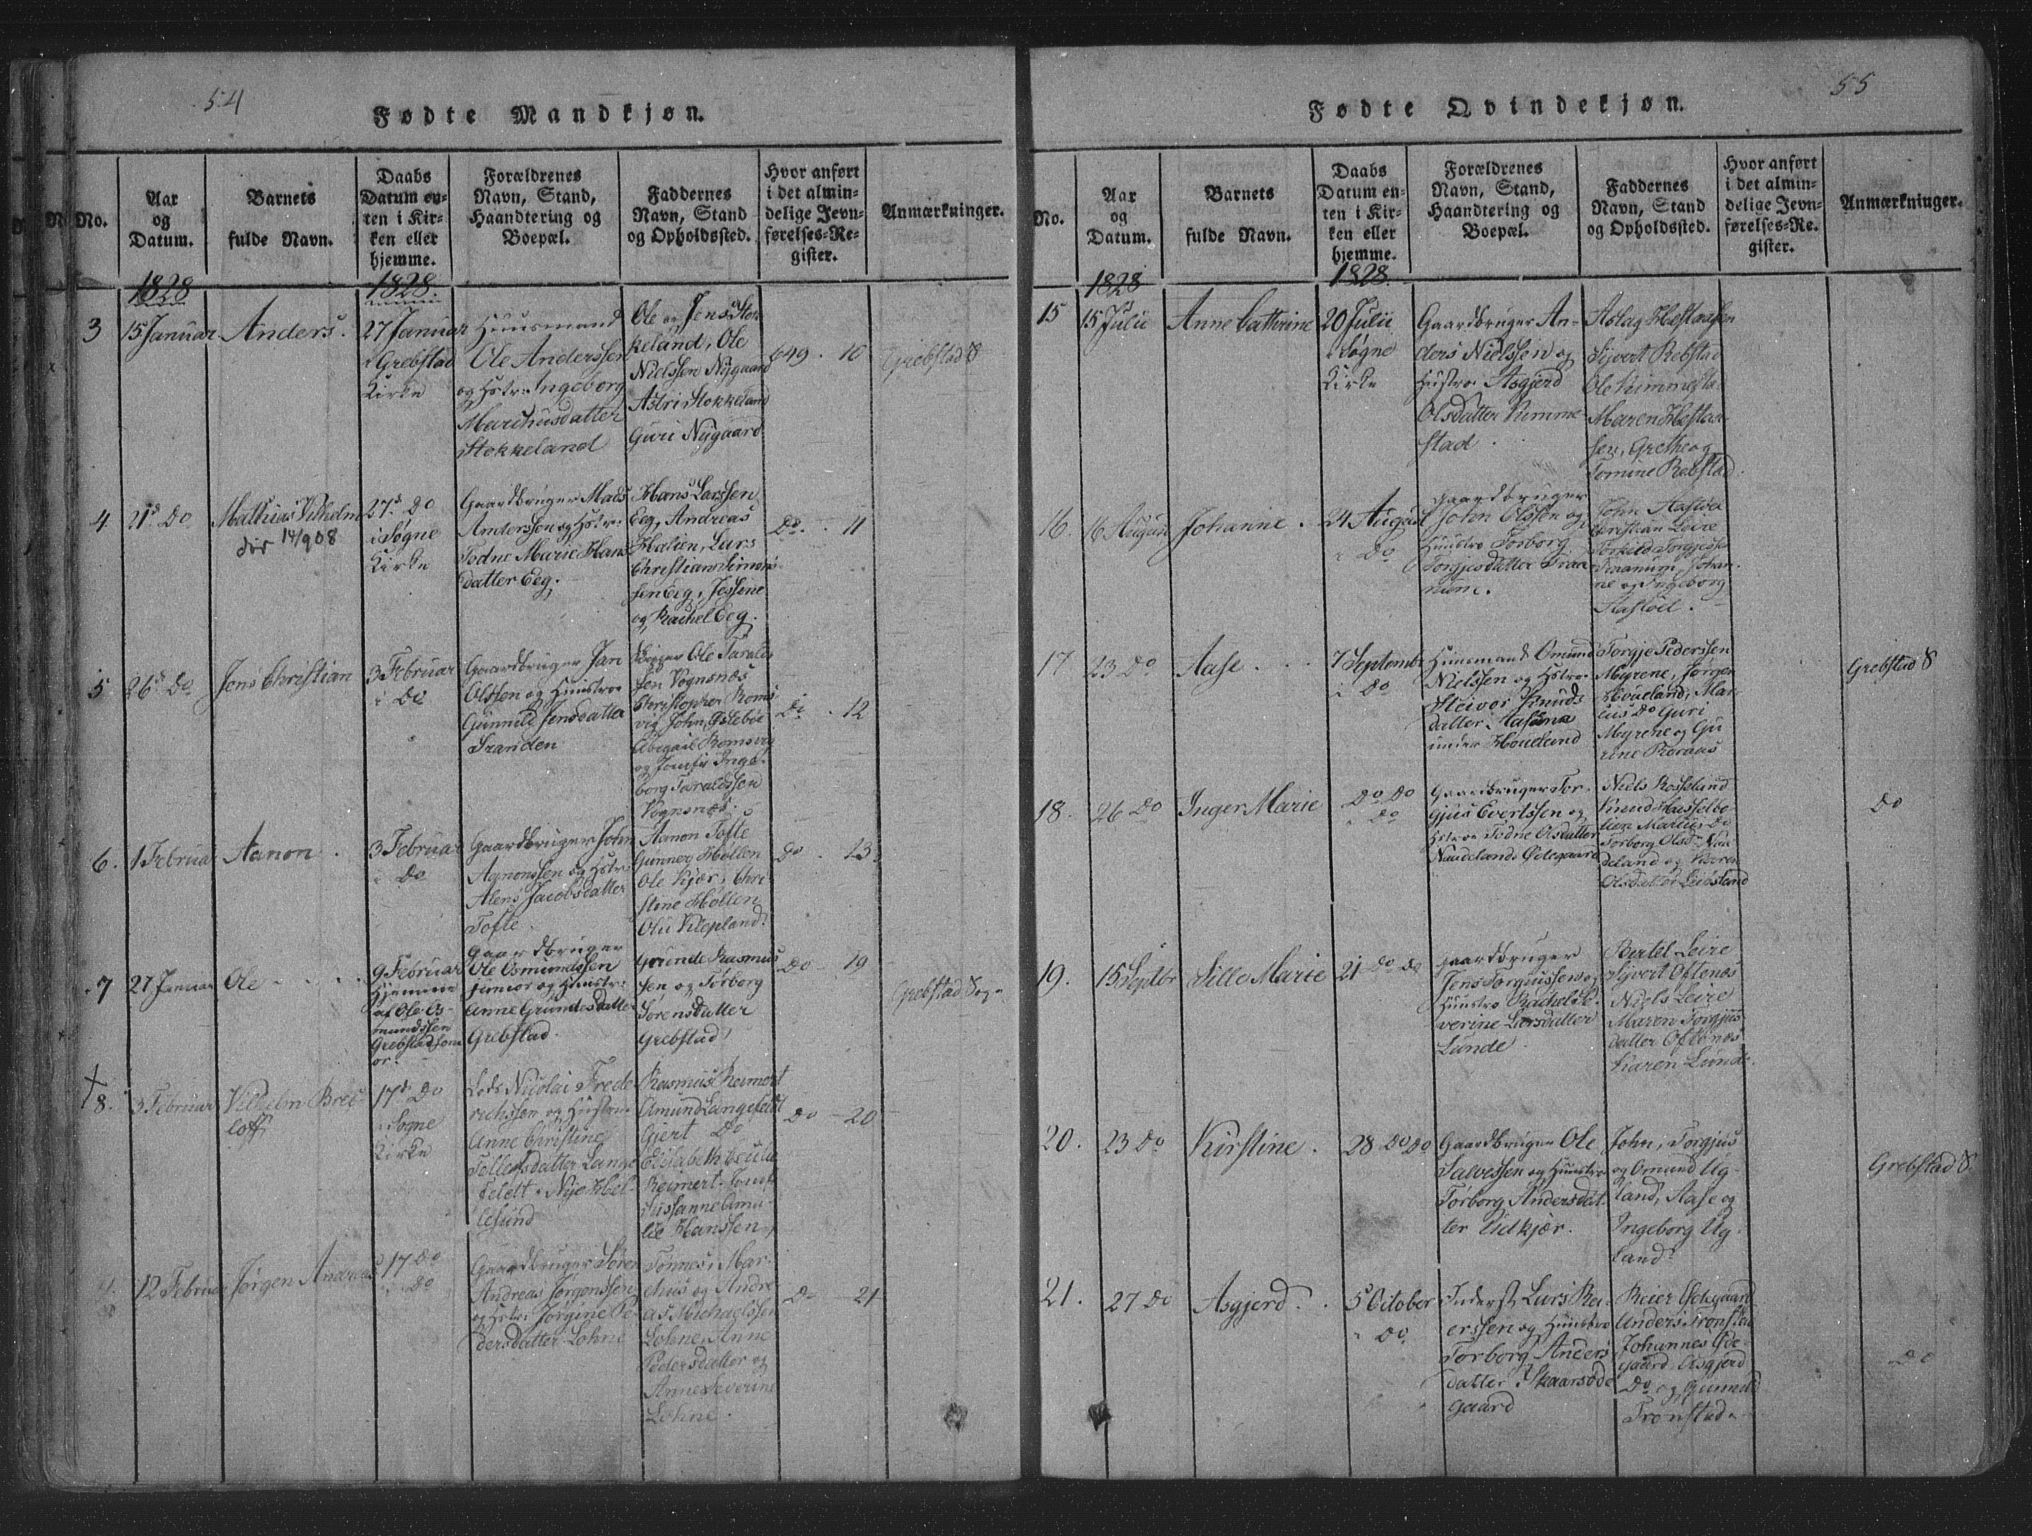 54
Fødte Mandkjøn.
No.
Aar
og
Datum.
Barnets
fulde Navn.
Daabs
Datum en-
ten i Kir-
ken eller
hjemme.
Forældrenes
Navn, Stand,
Haandtering og
Boepæl.
Faddernes
Navn, Stand
og Opholdssted.
Hvor anført
i det almin-
delige Jevn-
førelses-Re-
gister.
Anmærkninger.
1828
1828
3
15 Januar
Anders.
27 Januar
i Grebstad
Kirke
Huusmand
Ole Anderssen
og Hstr: Ingeborg
Marchusdatter
Stokkeland
Ole og Jens Stok
keland, Ole
Nielssen Nygaard
Astri Stokkeland
Guri Nygaard
649. 10
Grebstad S
4
21de Do
Mathias Vilhelm
dør 14/9 08
27de Do
i Søgne
Kirke
Gaardbruger Mads
Anderssen og Hstr:
Todne Marie Hans
datter Eeg.
Hans Larssen
Eeg, Andreas
Lars
Christian Simon
sen Eeg, Jessine
og Rachel Eeg.
Do. 11
5
26de Do
Jens Christian
3 Februar
i Do
Gaardbruger Jan
Olssen og Huustroe
Gunnild Jensdatter
Stranden
Ole Tarald
sen Vognsnæs
Christopher Roms
vig, John
Abigail Romsvig
og Jomfr Inge
borg Taraldssen
Vognsnæs.
Do. 12
6.
1 Februar
Aanon.
3 Februar
i Do
Gaardbruger John
Agnonssen og Hstr:
Jacobsdatter
Tofte.
Aanon Tofte
Gunner Høllen
Ole Kjær, Chri
stine Høllen
Olu Klepland.
Do. 13
7
27 Januar
Ole
9 Februar
Hjemme
af Ole Os-
mundssen
Grebstad
Gaardbruger
Ole Osmundssen
junior og Huustr:
Anne Grundesdatter
Grebstad.
Grunde Rasmus
sen og Torborg
Sørensdatter
Grebstad
Do 19
Grebstad Sogn
8.
3 Februar
Vilhelm
17de Do
i Søgne
Kirke
Lods Nicolai Frede
richssen og Hustru
Anne Christine
Tellefsdatter Lange
feldt. Nye Hel-
lesund
Rasmus Reimert
Amund Langefeldt
Gjert Do
Elisabeth
Reimert. Jomf
Susanne Ama
lie Hanssen
Do 20
12 Februar
Jørgen Andreas
17 Do
i Do
Gaardbruger Søren
Andreas Jørgenssen
og Hstr: Jørgine Pe
dersdatter Lohne
Tønnes, Mar-
thus og Andre
as Michaelssen
Lohne, Anne
Pedersdatter og
Anne Severine
Lohne.
Do 21
55
Fødte Qvindekjøn.
No.
Aar
og
Datum.
Barnets
fulde Navn.
Daabs
Datum en-
ten i Kir-
ken eller
hjemme.
Forældrenes
Navn, Stand,
Haandtering og
Boepæl.
Faddernes
Navn, Stand
og Opholdssted.
Hvor anført
i det almin-
delige Jevn-
førelses-Re-
gister.
Anmærkninger.
1828
1828
15
15 Julii
Anne Cathrine
20 Julii
i Søgne
Kirke
Gaardbruger An-
ders Nielssen og
Hustroe Asgjerd
Olsdatter Rimme-
stad.
Aslag
Sivert Rebstad
Ole
Maren
Grethe og
Tomine Rebstad.
16.
16 August
Johanne.
24 August
i Do
Gaardbruger
John Olssen og
Huustroe Torborg
Torgjesdatter Traa
num.
John Aastøl
Christian Leire
Torkeld Torgjessen
Traanum, Johan-
ne og Ingeborg
Aastøl.
17
23 Do
Aase.
7 Septembr
i Do
Huusmand Omund
Nielssen og Hstroe
Steivor Knuds
datter
under Houeland
Torgje Pederssen
Myrene, Jørgen
Houeland, Mar-
Do Guri
Myrene og Gu
rine
Grebstad S
18.
26 Do
Inger Marie
Do Do
i Do
Gaardbruger Tor-
gjus Evertssen og
Hstroe Todne Olsdatter
Naudeland Ødegaard
Niels Rosseland
Knud
Do
Torborg Olsd: Nau
deland og Karen
Olsdatter
Do
19.
15 Septbr
Sille Marie
21 Do Do
Gaardbruger
Jens Torgiussen og
Huustroe Rachel Se
verine Larsdatter
Lunde.
Bertel Leire
Sivert Oftenæs
Niels Leire
Maren Torgjus
datter Oftenæs
Karen Lunde.
20.
23 Do
Kirstine.
28 Do Do
Gaardbruger Ole
Salvessen og Huustroe
Torborg Andersdat
ter Udkjær.
John, Torgjus
og Omund Ug-
land, Aase og
Ingeborg Ug-
land.
Grebstad S.
21.
27 Do
Asgjerd.
5 October
i Do
Inderst Lars Rei-
erssen og Huustroe
Torborg Anders
datter, Skaarsøde
gaard
Reier Ødegaard
Anders Tronstad
Johannes Øde-
gaard, Asgjerd
Do og Gunnild
Tronstad.
Do